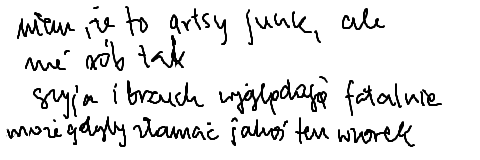 wiem, że to artsy junk, ale
nie rób tak
szyja i brzuch wyglądają fatalnie
może gdyby złamać jakoś ten wzorek